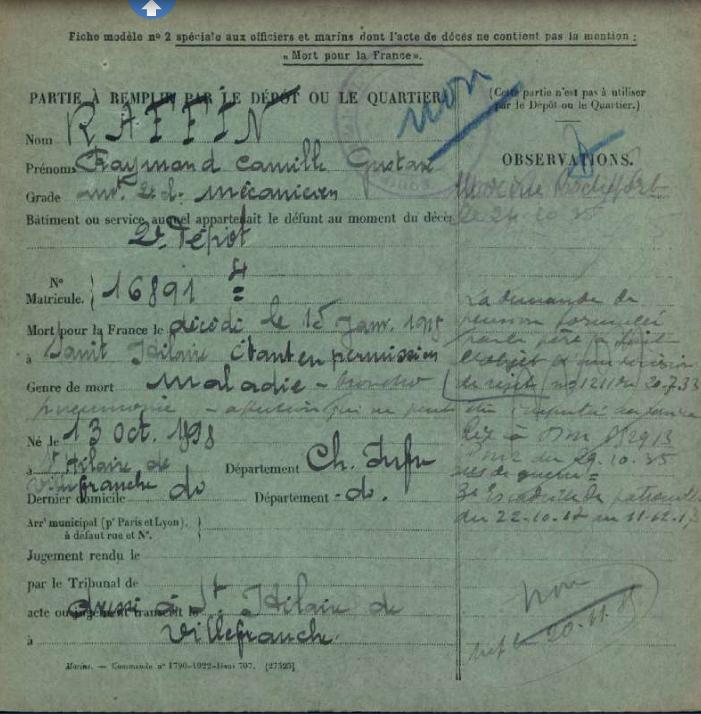 Fiche modèle n° 2 spéciale aux officiers et marins dont l'acte de décès ne contient pas la mention :
« Mort pour la France ».
non
PARTIE À REMPLIR PAR LE DÉPÔT OU LE QUARTIER
Nom RAFFIN
Prénoms Raymond Camille Gustave
Grade mot. 2e cl. mécanicien
Bâtiment ou service auquel appartenait le défunt au moment du décès
2e Dépôt
N° Matricule. 16891 4
Mort pour la France le décédé le 15 Janv. 1918
à Saint Hilaire étant en permission
Genre de mort Maladie - broncho
pneumonie - affection qui ne peut être imputée au service
Né le 13 Oct. 1898
à St Hilaire de
Villefranche Département Ch. Infre
Dernier domicile do Département - do.
Arrt municipal (pr Paris et Lyon).
à défaut rue et N°.
Jugement rendu le
par le Tribunal de
acte ou jugement transcrit le dressé à St Hilaire de
à Villefranche.
Marine. — Commande n° 1790-1922- 707. [27525]
(Cette partie n'est pas à utiliser
par le Dépôt ou le Quartier.)
OBSERVATIONS.
Rochefort
le 24.10.35
La demande de
pension formulée
par le père a fait
l'objet d'une décision
de rejet no 1211 du 20.7.33
du 29.10.35
3e Escadrille de patrouille
du 22.10.17 au
non
20-11-35